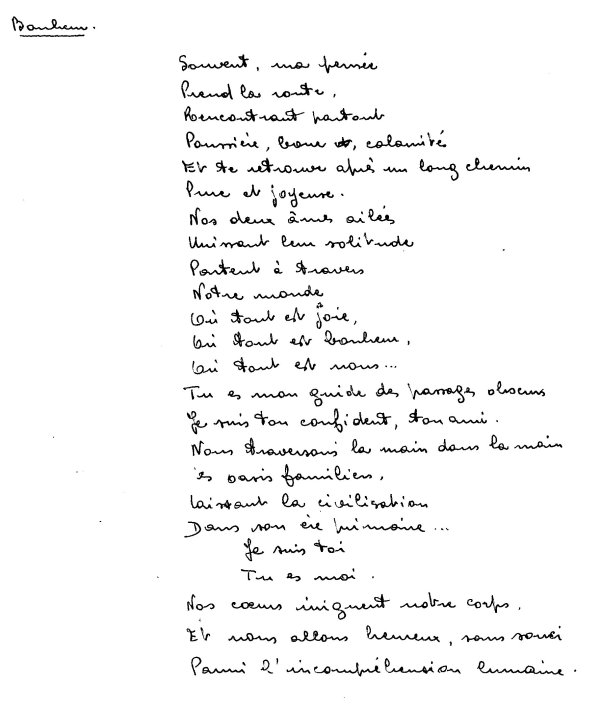 Bonheur.
Souvent, ma pensée
Prend la route,
Rencontrant partout
Poussière, boue et, calamité
Et te retrouve après un long chemin
Pure et joyeuse.
Nos deux âmes ailées
Unissant leur solitude
Partent à travers
Notre monde
Où tout est joie,
Où tout est bonheur,
Où tout est nous...
Tu es mon guide des passages obscurs
Je suis ton confident, ton ami.
Nous traversons la main dans la main
es oasis familiers,
Laissant la civilisation
Dans son ère primaire...
Je suis toi
Tu es moi.
Nos cœurs notre corps,
Et nous allons heureux, sans souci
Parmi l'incompréhension humaine.